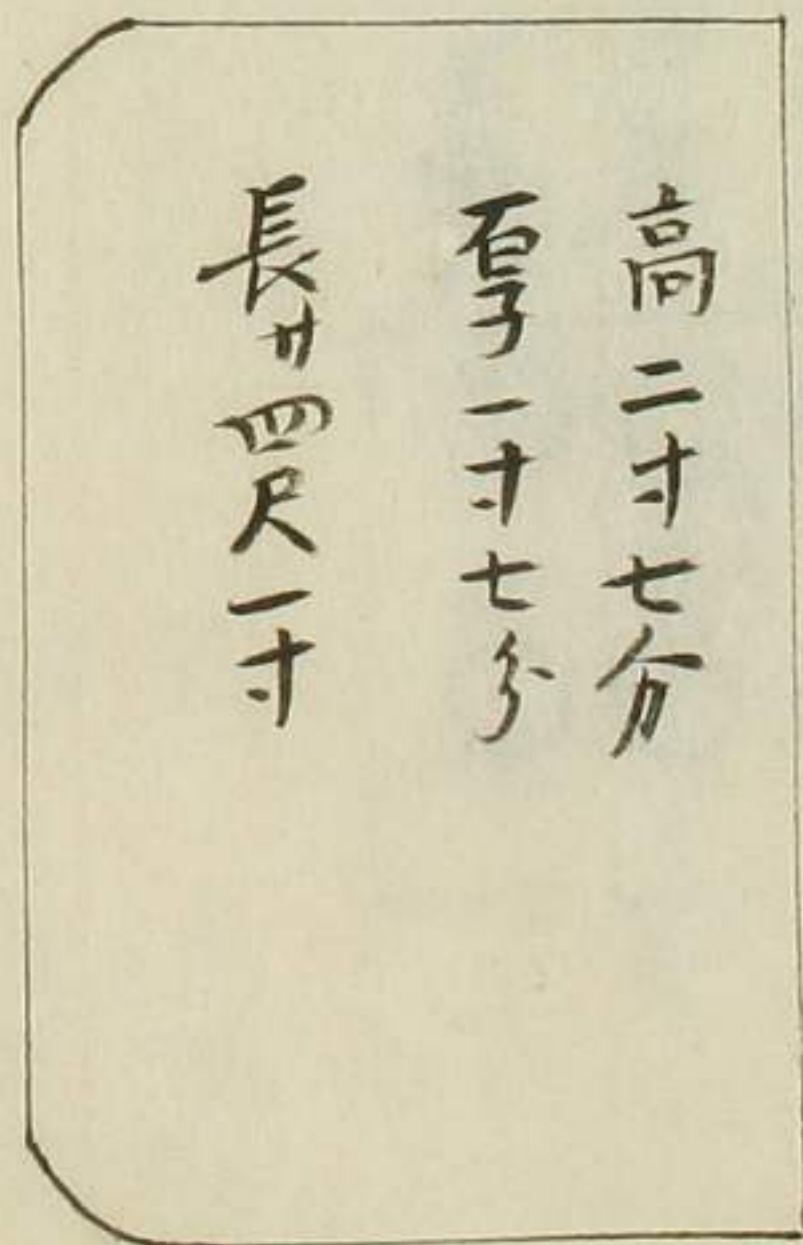 高二寸七分
厚一寸七分
長廿四尺一寸